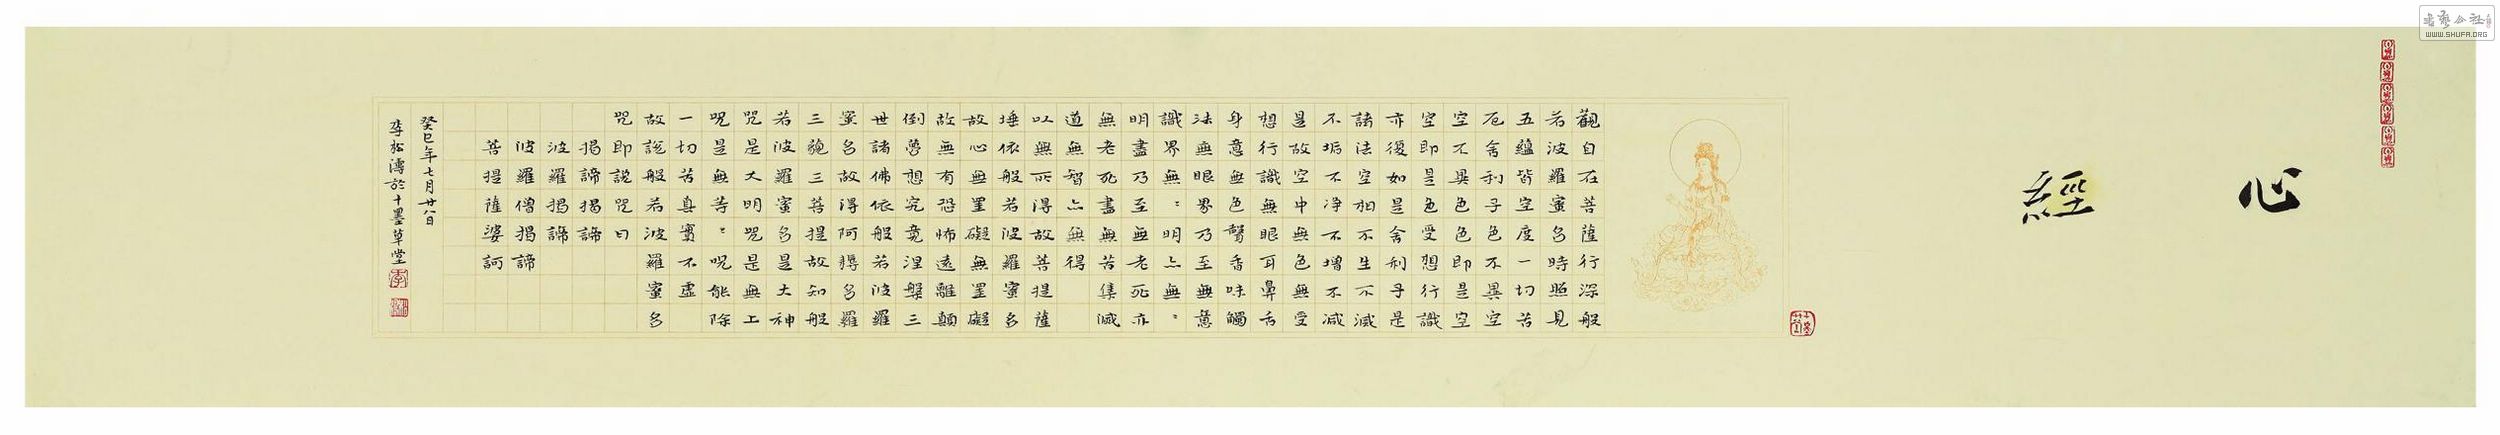 心經
觀自在菩薩行深般
若波羅蜜多時照見
五蘊皆空度一切苦
厄舍利子色不異空
空不異色色即是空
空即是色受想行識
亦復如是舍利子是
諸法空相不生不滅
不垢不净不增不减
是故空中無色無受
想行識無眼耳鼻舌
身意無色聲香味觸
法無眼界乃至無意
識界無〻明亦無〻
明盡乃至無老死亦
無老死盡無苦集滅
道無智亦無得
以無所得故菩提薩
埵依般若波羅蜜多
故心無罣礙無罣礙
故無有恐怖遠離顛
倒夢想究竟涅槃三
世諸佛依般若波羅
蜜多故得阿耨多羅
三藐三菩提故知般
若波羅蜜多是大神
咒是大明咒是無上
呪是無等〻呪能除
一切苦真實不虛
故說般若波羅蜜多
咒即說咒曰
揭諦揭諦
波羅揭諦
波羅僧揭諦
菩提薩婆訶
癸巳年七月廿八日
李松濤於十墨草堂
WWW.SHUFA.ORG